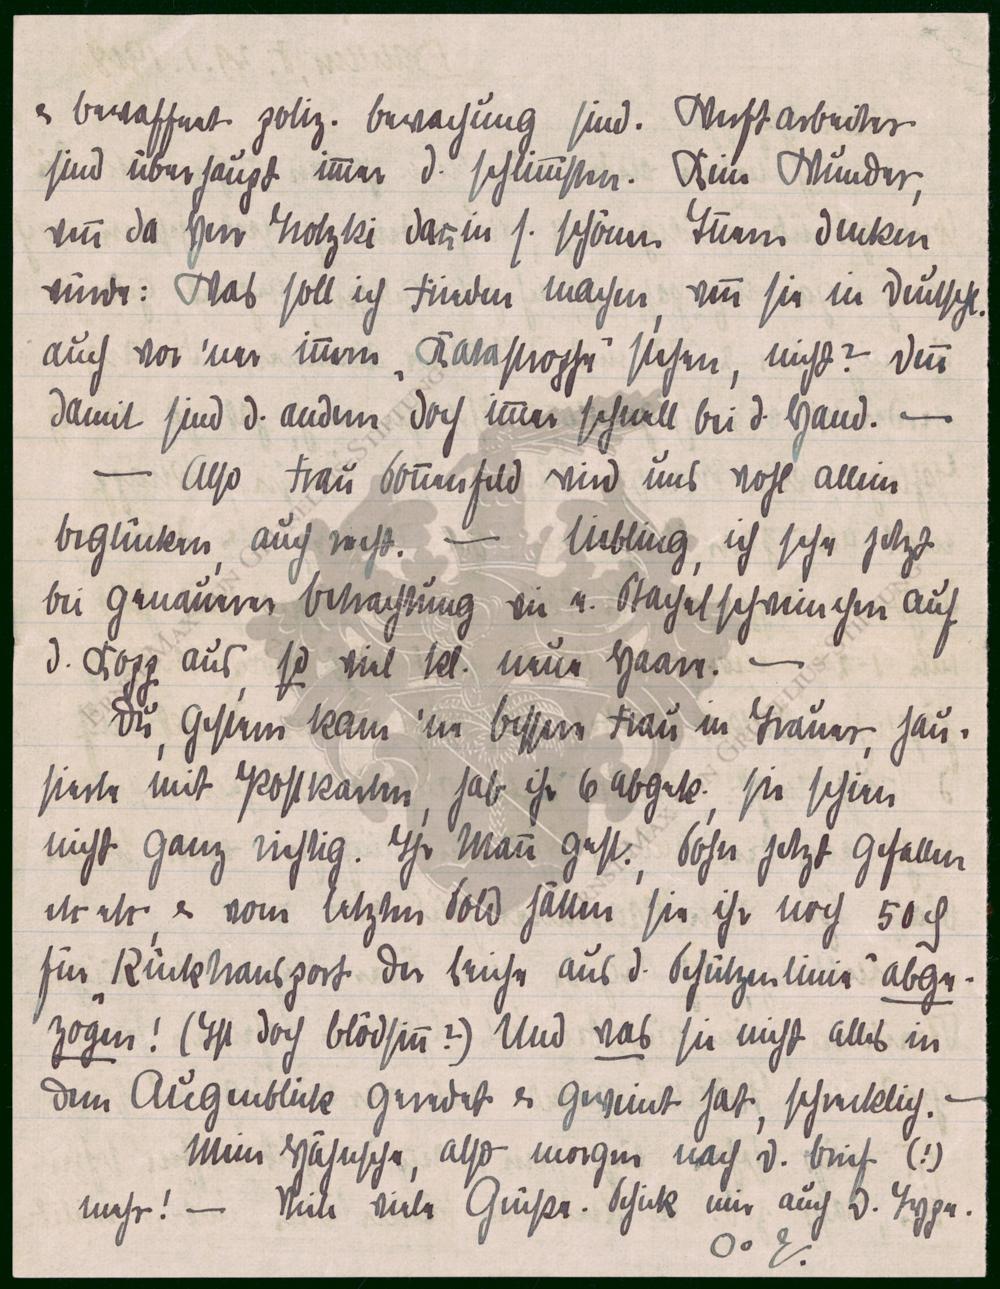 & bewaffnet poliz. Bewachung sind. Werftarbeiter
sind überhaupt im̅er d. schlim̅sten. Kein Wunder,
wen̅ da Herr Trotzki darin s. schönen In̅ern denken
würde: Was soll ich Frieden machen, wen̅ sie in Deutschl.
auch vor 'ner in̅ern „Katastrophe" stehen, nicht? Den̅
damit sind d. andern doch im̅er schnell bei d. Hand. —
— Also Frau Son̅enfeld wird uns wohl allein
beglücken, auch recht. — Liebling, ich sehe jetzt
bei genauerer Betrachtung wie e. Stachelschweinchen auf
d. Kopp aus, so viel kl. neue Haare. —
Du, gestern kam 'ne bessere Frau in Trauer, hau-
sierte mit Postkarten, hab ihr 6 abgek., sie schien
nicht ganz richtig. Ihr Man̅ gest., Sohn jetzt gefallen
etc etc, & vom letzten Sold hätten sie ihr noch 50 ₰
für „Rücktransport der Leiche aus d. Schützenlinie" abge-
zogen! (Ist doch Blödsin̅?) Und was sie nicht alles in
dem Augenblick geredet & geweint hat, schrecklich. —
Mein Hähnsche, also morgen nach d. Brief (!)
mehr! — Viele viele Grüße. Schick mir auch d. Type.